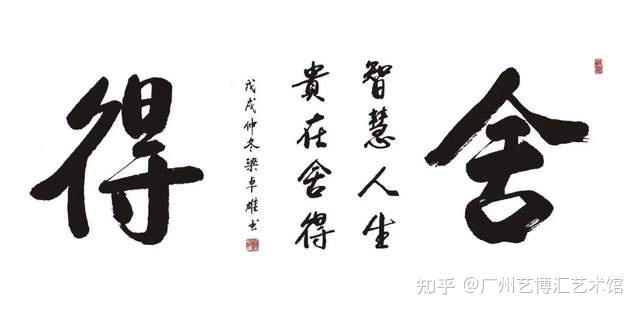 舍
智慧人生
貴在舍得
戊戌仲冬梁卓雄书
得
知乎 @广州艺博汇艺术馆